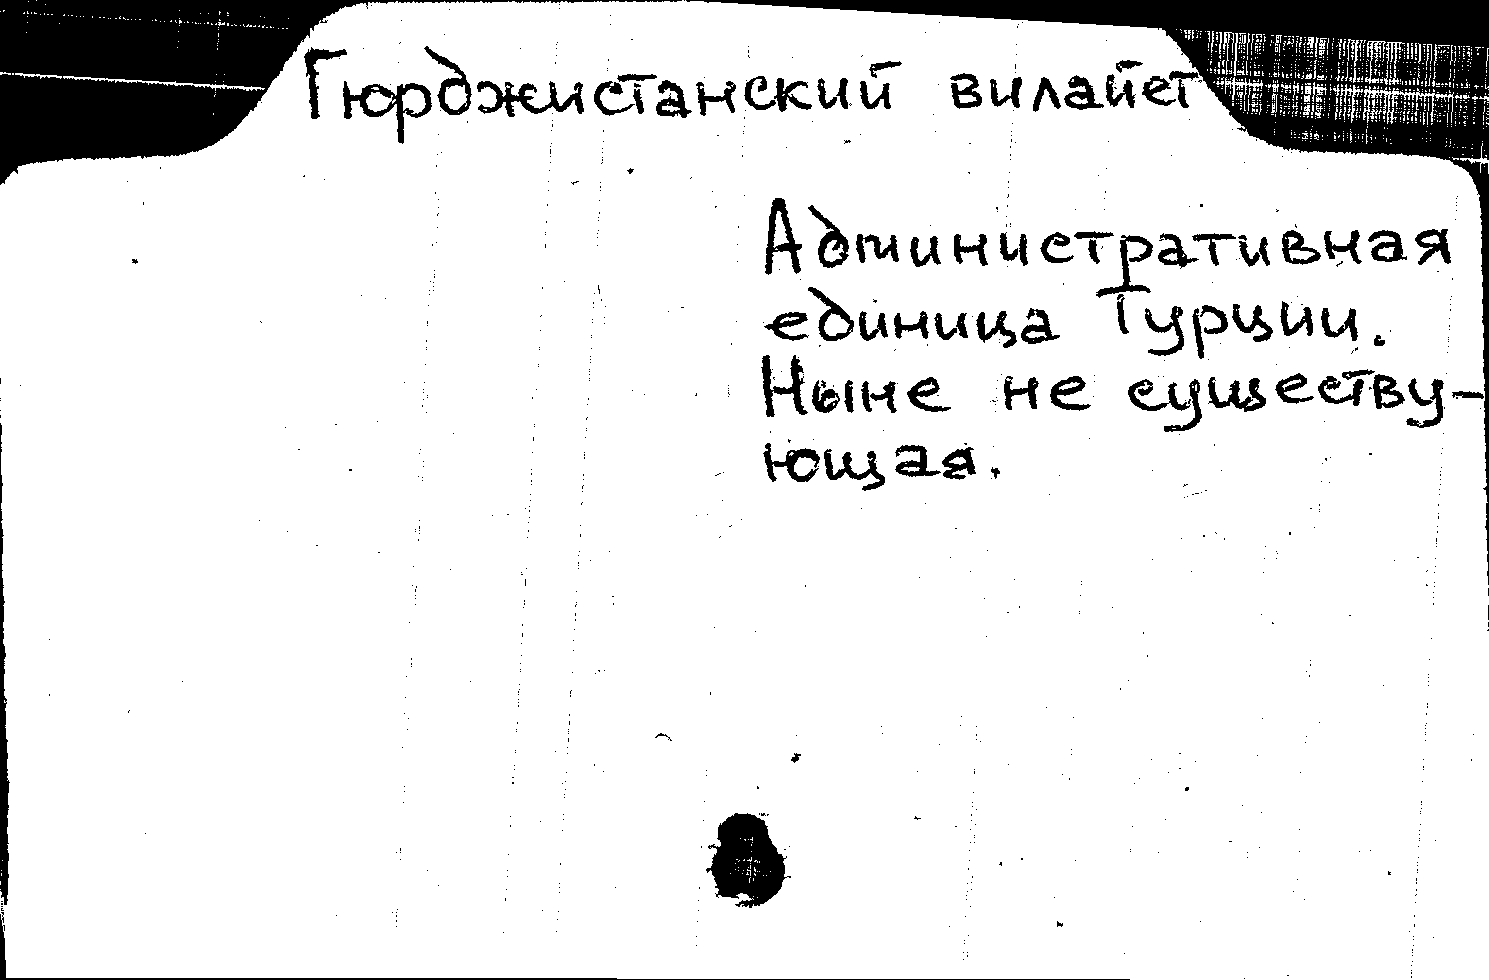 Гюрджистанский вилайет
Административная
единица Турции.
Ныне не существу-
ющая.